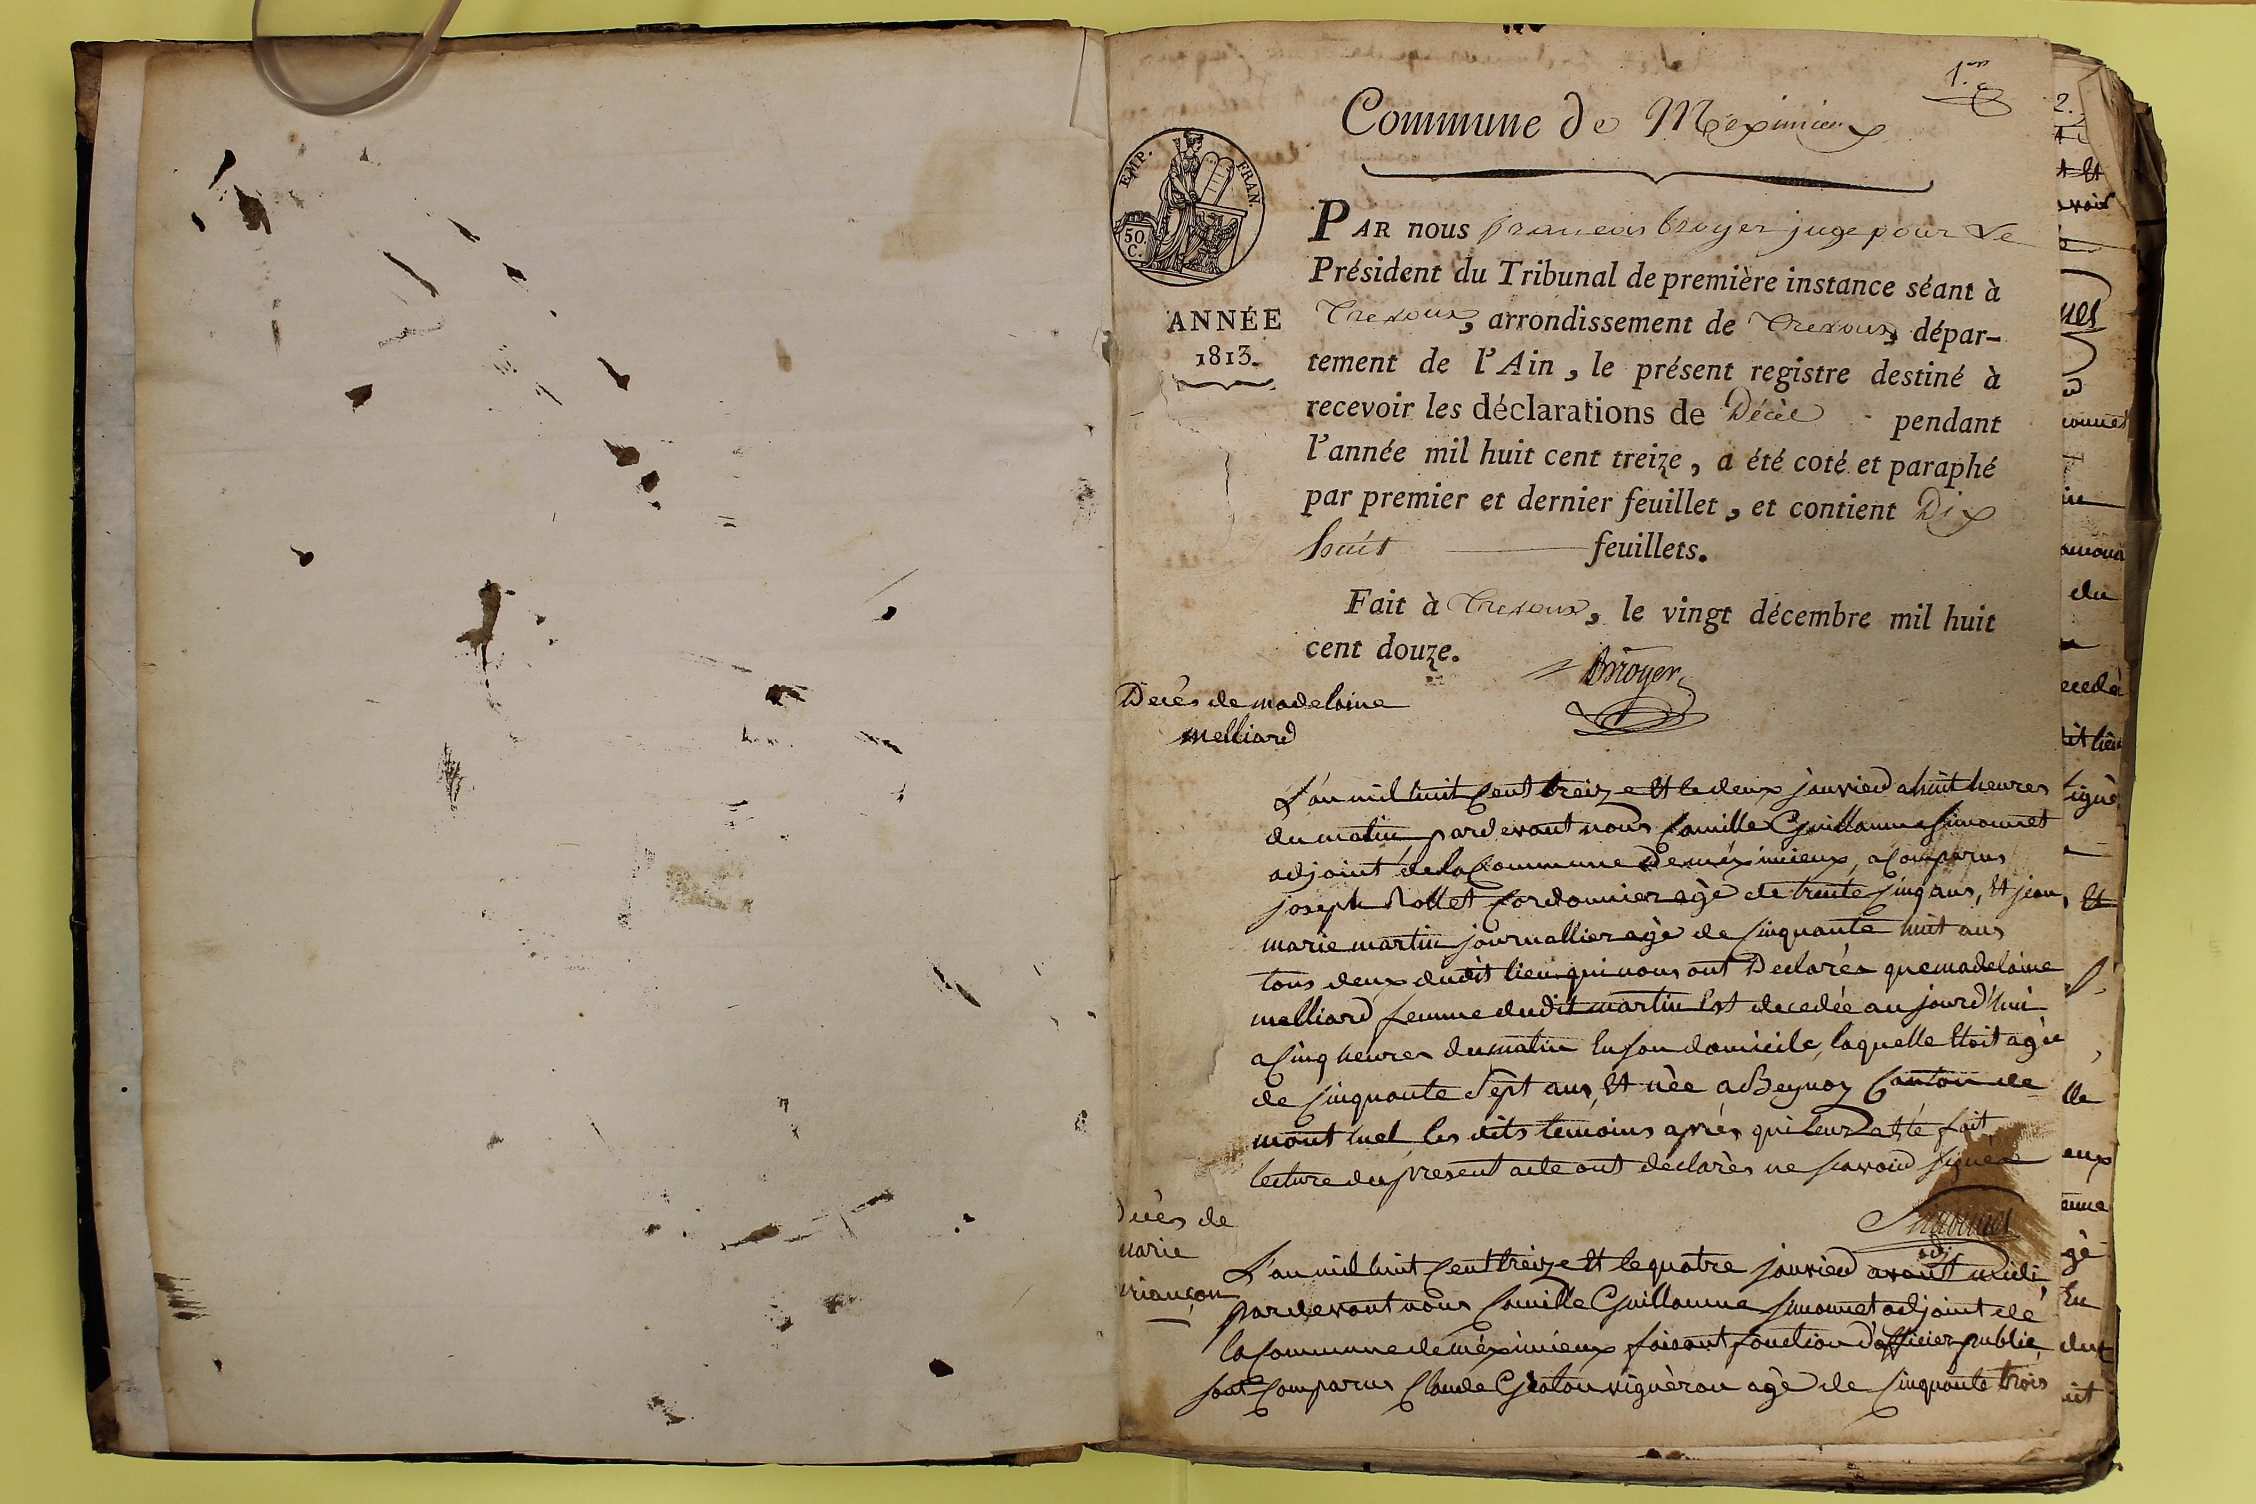 1.er
Commune de Meximieux
EMP. FRAN.
50. C.
ANNÉE
1813.
PAR nous françois Broyer juge pour Le
Président du Tribunal de première instance séant à
Trevoux, arrondissement de Trevoux, dépar-
tement de l'Ain, le présent registre destiné à
recevoir les déclarations de Décès pendant
l'année mil huit cent treize, a été coté et paraphé
par premier et dernier feuillet, et contient Dix
huit feuillets.
Fait à Trevoux, le vingt décembre mil huit
cent douze.
Broyer
Decès de madelaine
melliard
L'an mil huit Cent treize et le deux janvier a huit heures
du matin, pardevant nous Camille Guillaume Simonnet
adjoint de la Commune de méximieux, a Comparus
joseph Rollet Cordonnier agè de trente Cinq ans, Et jean
marie martin journallier agè de Cinquante huit ans
tous deux dudit lieu qui nous ont Declarés que madelaine
melliard femme dudit martin Est decedée aujourd'hui
a Cinq heures du matin En son domicile, laquelle Etoit agèe
de Cinquante Sept ans, Et nèe a Beynoz Canton de
mont luel les dits temoins après qui leur a été fait
lecture du present acte ont declarès ne scavoir signer
Simonnet
adj
Décès de
marie
briançon
L'an mil huit Cent treize Et le quatre janvier avant midi
pardevant nous Camille Guillaume Simonnet adjoint de
la Commune de méximieux faisant fonction d'officier public,
sont Comparus Claude Graton vignèron agè de Cinquante trois
2.